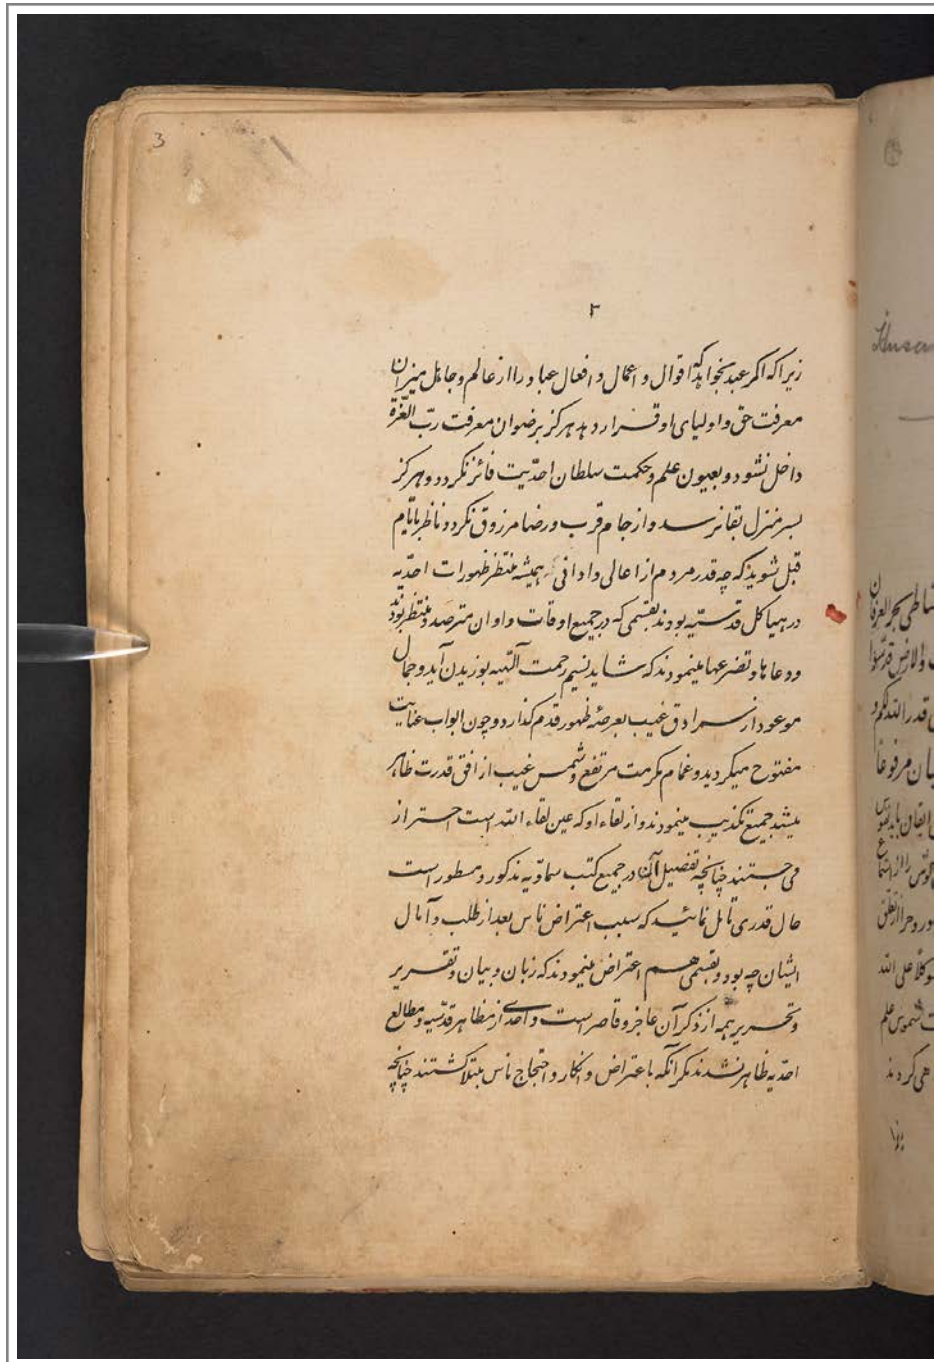 3
۲
زیرا که اکر عبد بخواهد که اقوال و اعمال و افعال عباد را از عالم و جاهل میزان
معرفت حق و اولیای او قرار دهد هرکز برضوان معرفت ربّ العزّة
داخل نشود و بعیون علم و حکمت سلطان احدّیت فائز نکردد و هرکز
بسر منزل بقا نرسد و از جام قرب و رضا مرزوق نکردد ناظر بایّام
قبل شوید که چه قدر مردم از اعالی و ادانی همیشه منتظر ظهورات احدّیه
در هیاکل قدسیّه بودند بقسمی که در جمیع اوقات و اوان مترصد و منتظر بودند
و دعاها و تضرعها مینمودند که شاید نسیم رحمت الٓهیه بوزیدن آید و جمال
موعود از سرادق غیب بعرصهٔ ظهور قدم کذارد و چون ابواب عنایت
مفتوح میکردید و غمام مکرمت مرتفع و شمس غیب از افق قدرت ظاهر
میشد جمیع تکذیب مینمودند و از لقاء او که عین لقاء اللّه است احتراز
می جستند چنانچه تفصیل آن در جمیع کتب سماویّه مذکور و مسطور است
حال قدری تأمل نمائید که سبب اعتراض ناس بعد از طلب و آمال
ایشان چه بود و بقسمی هم اعتراض مینمودند که زبان و بیان و تقریر
و تحریر همه از ذکر آن عاجز و قاصر است و احدی از مظاهر قدسیّه و مطالع
احدّیه ظاهر نشدند مکر آنکه باعتراض و انکار و احتجاج ناس مبتلا کشتند چنانچه